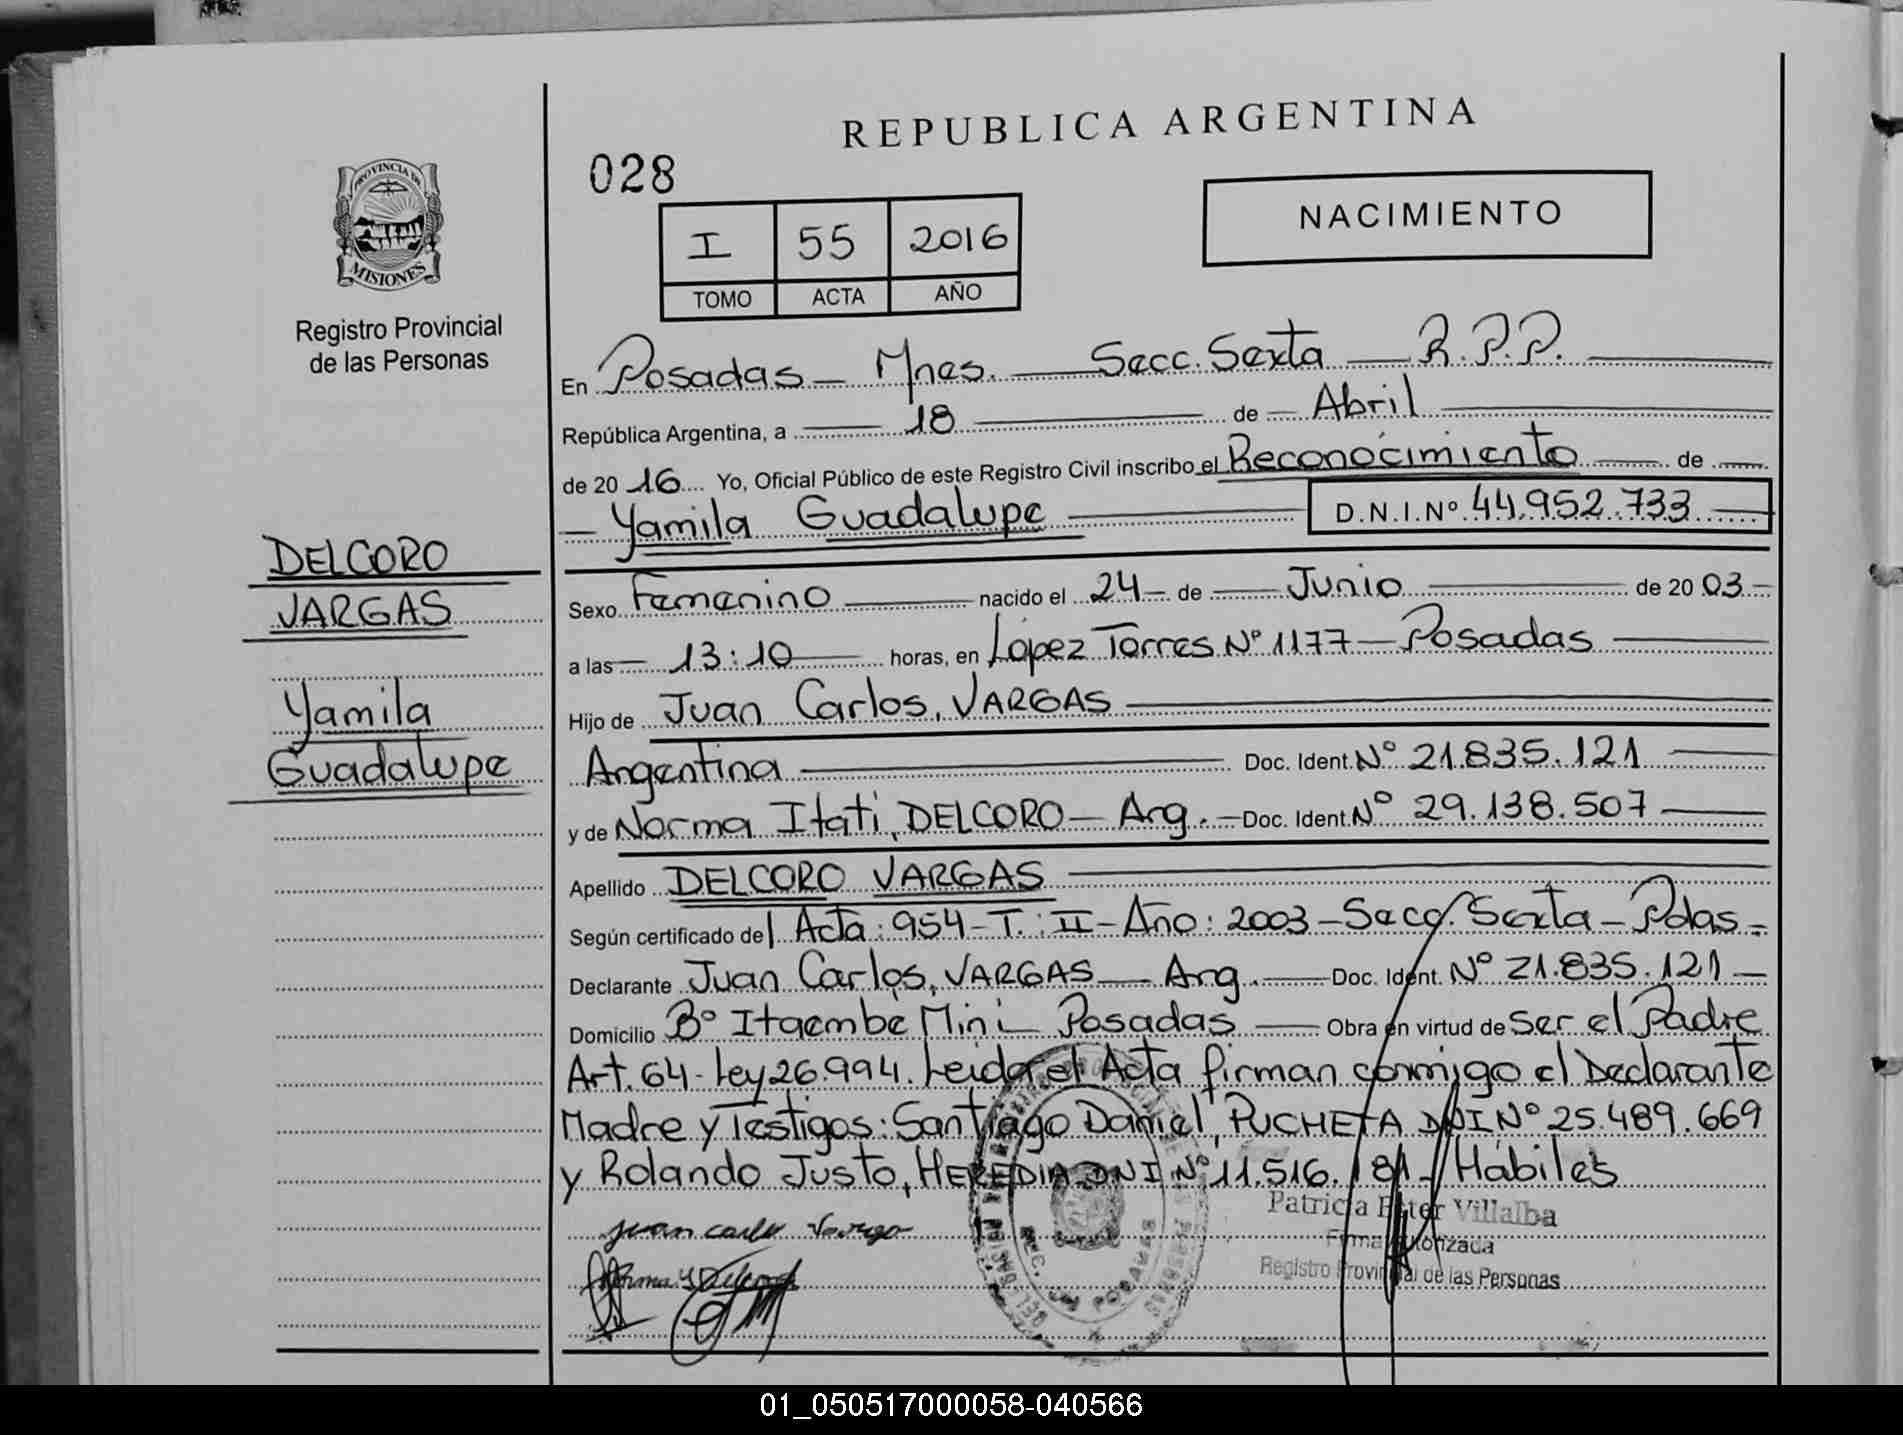 REPUBLICA ARGENTINA
028
NACIMIENTO
I 55 2016
TOMO ACTA AÑO
PROVINCIA DE
MISIONES
Registro Provincial
de las Personas
En Posadas - Mnes. - Secc. Sexta - R.P.P.
República Argentina, a - 18 - de - Abril
de 20 16 Yo, Oficial Público de este Registro Civil inscribo el Reconocimiento de
- Yamila Guadalupe D.N.I.Nº 44.952.733
DELCORO
VARGAS
Yamila
Guadalupe
Sexo Femenino nacido el 24 - de - Junio de 20 03 -
a las - 13:10 horas, en López Torres Nº 1177 - Posadas
Hijo de Juan Carlos, VARGAS
Argentina Doc. Ident. Nº 21.835.121
y de Norma Itati, DELCORO - Arg. - Doc. Ident. Nº 29.138.507
Apellido DELCORO VARGAS
Según certificado del Acta: 954 - T.: II - Año: 2003 - Secc. Sexta - Pdas -
Declarante Juan Carlos, VARGAS - Arg. - Doc. Ident. Nº 21.835.121 -
Domicilio Bº Itaembe Mini - Posadas - Obra en virtud de ser el Padre
Art. 64 - Ley 26.994. Leida el Acta firman conmigo el Declarante
Madre y Testigos: Santiago Daniel, PUCHETA DNI Nº 25.489.669
y Rolando Justo, HEREDIA DNI Nº 11.516.181 - Hábiles
Juan Carlos Vargas
Patricia Ester Villalba
Firma Autorizada
Registro Provincial de las Personas
POSADAS
01_050517000058-040566